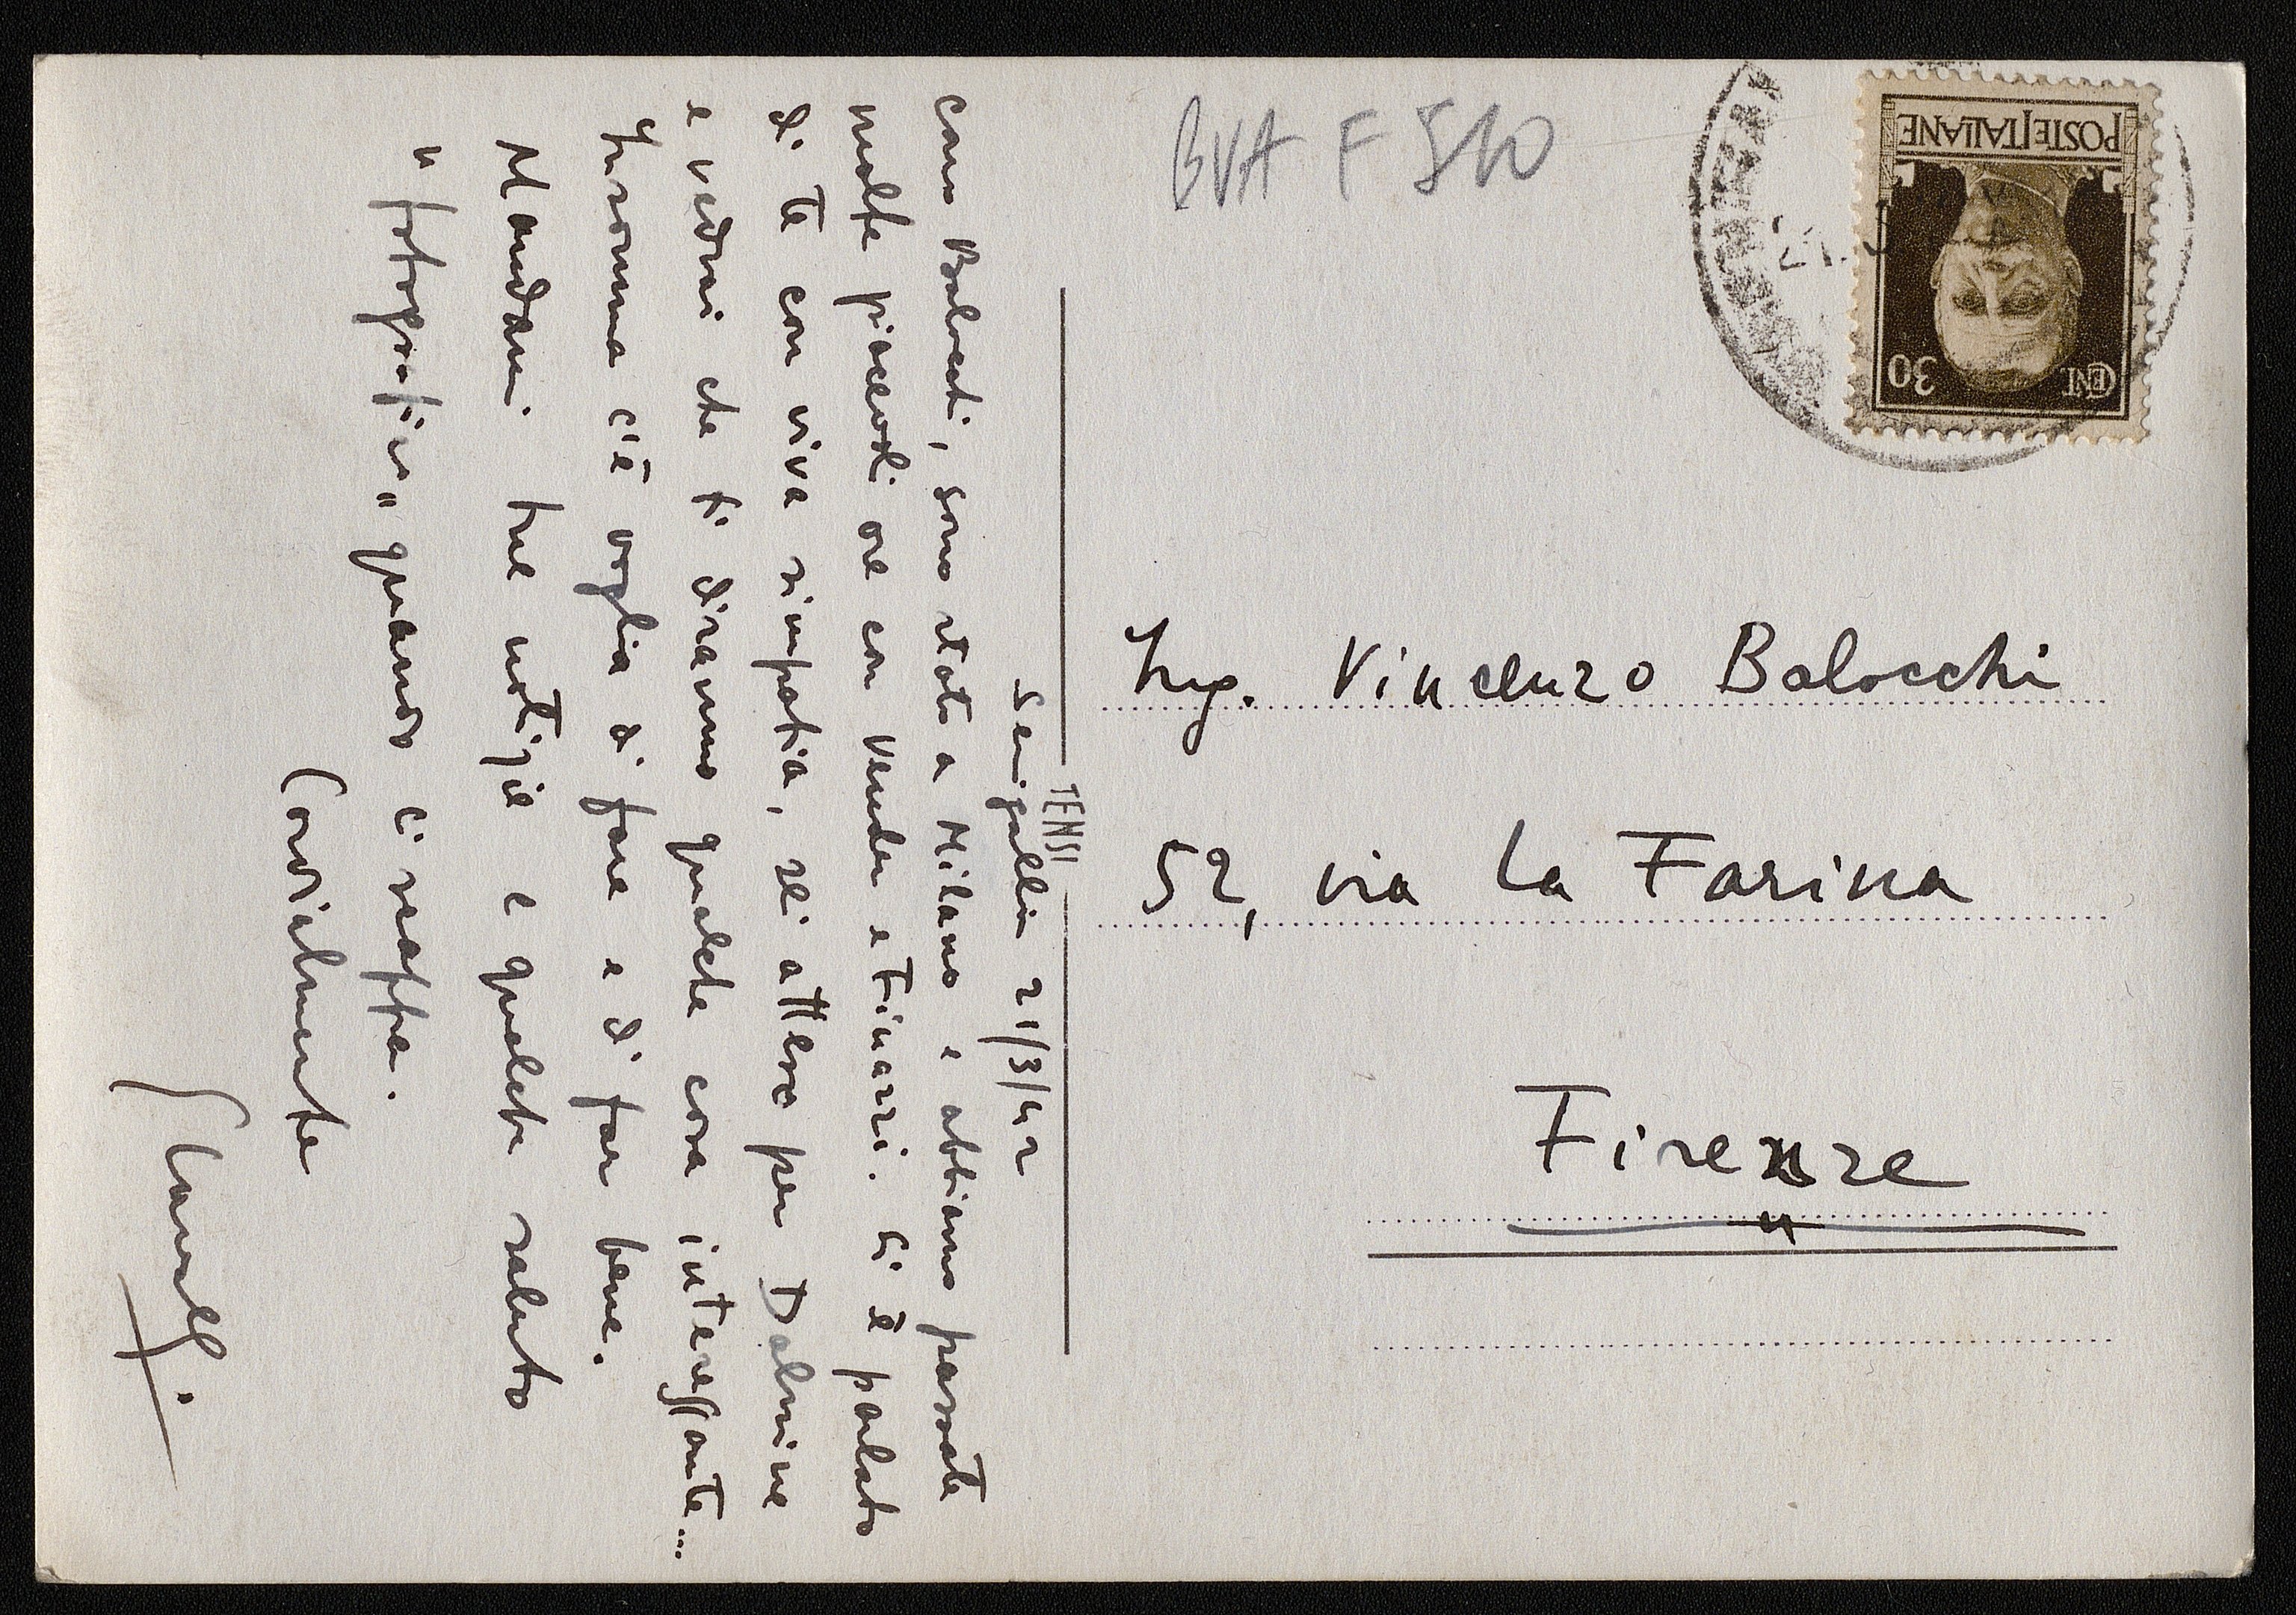 BVA F 510
POSTE ITALIANE
CENT. 30
Senigallia 21/3/42
caro Balocchi, sono stato a Milano e abbiamo passate
molte piacevoli ore con Vender e Finazzi. Si è parlato
di te con viva simpatia, sei atteso per Dalmine
e vedrai che ti diranno qualche cosa interessante...
Insomma c'è voglia di fare e di far bene.
Mandami tue notizie e qualche saluto
"fotografico" quando ci scappa.
Cordialmente
Cavalli
TENSI
Ing. Vincenzo Balocchi
52, via La Farina
Firenze